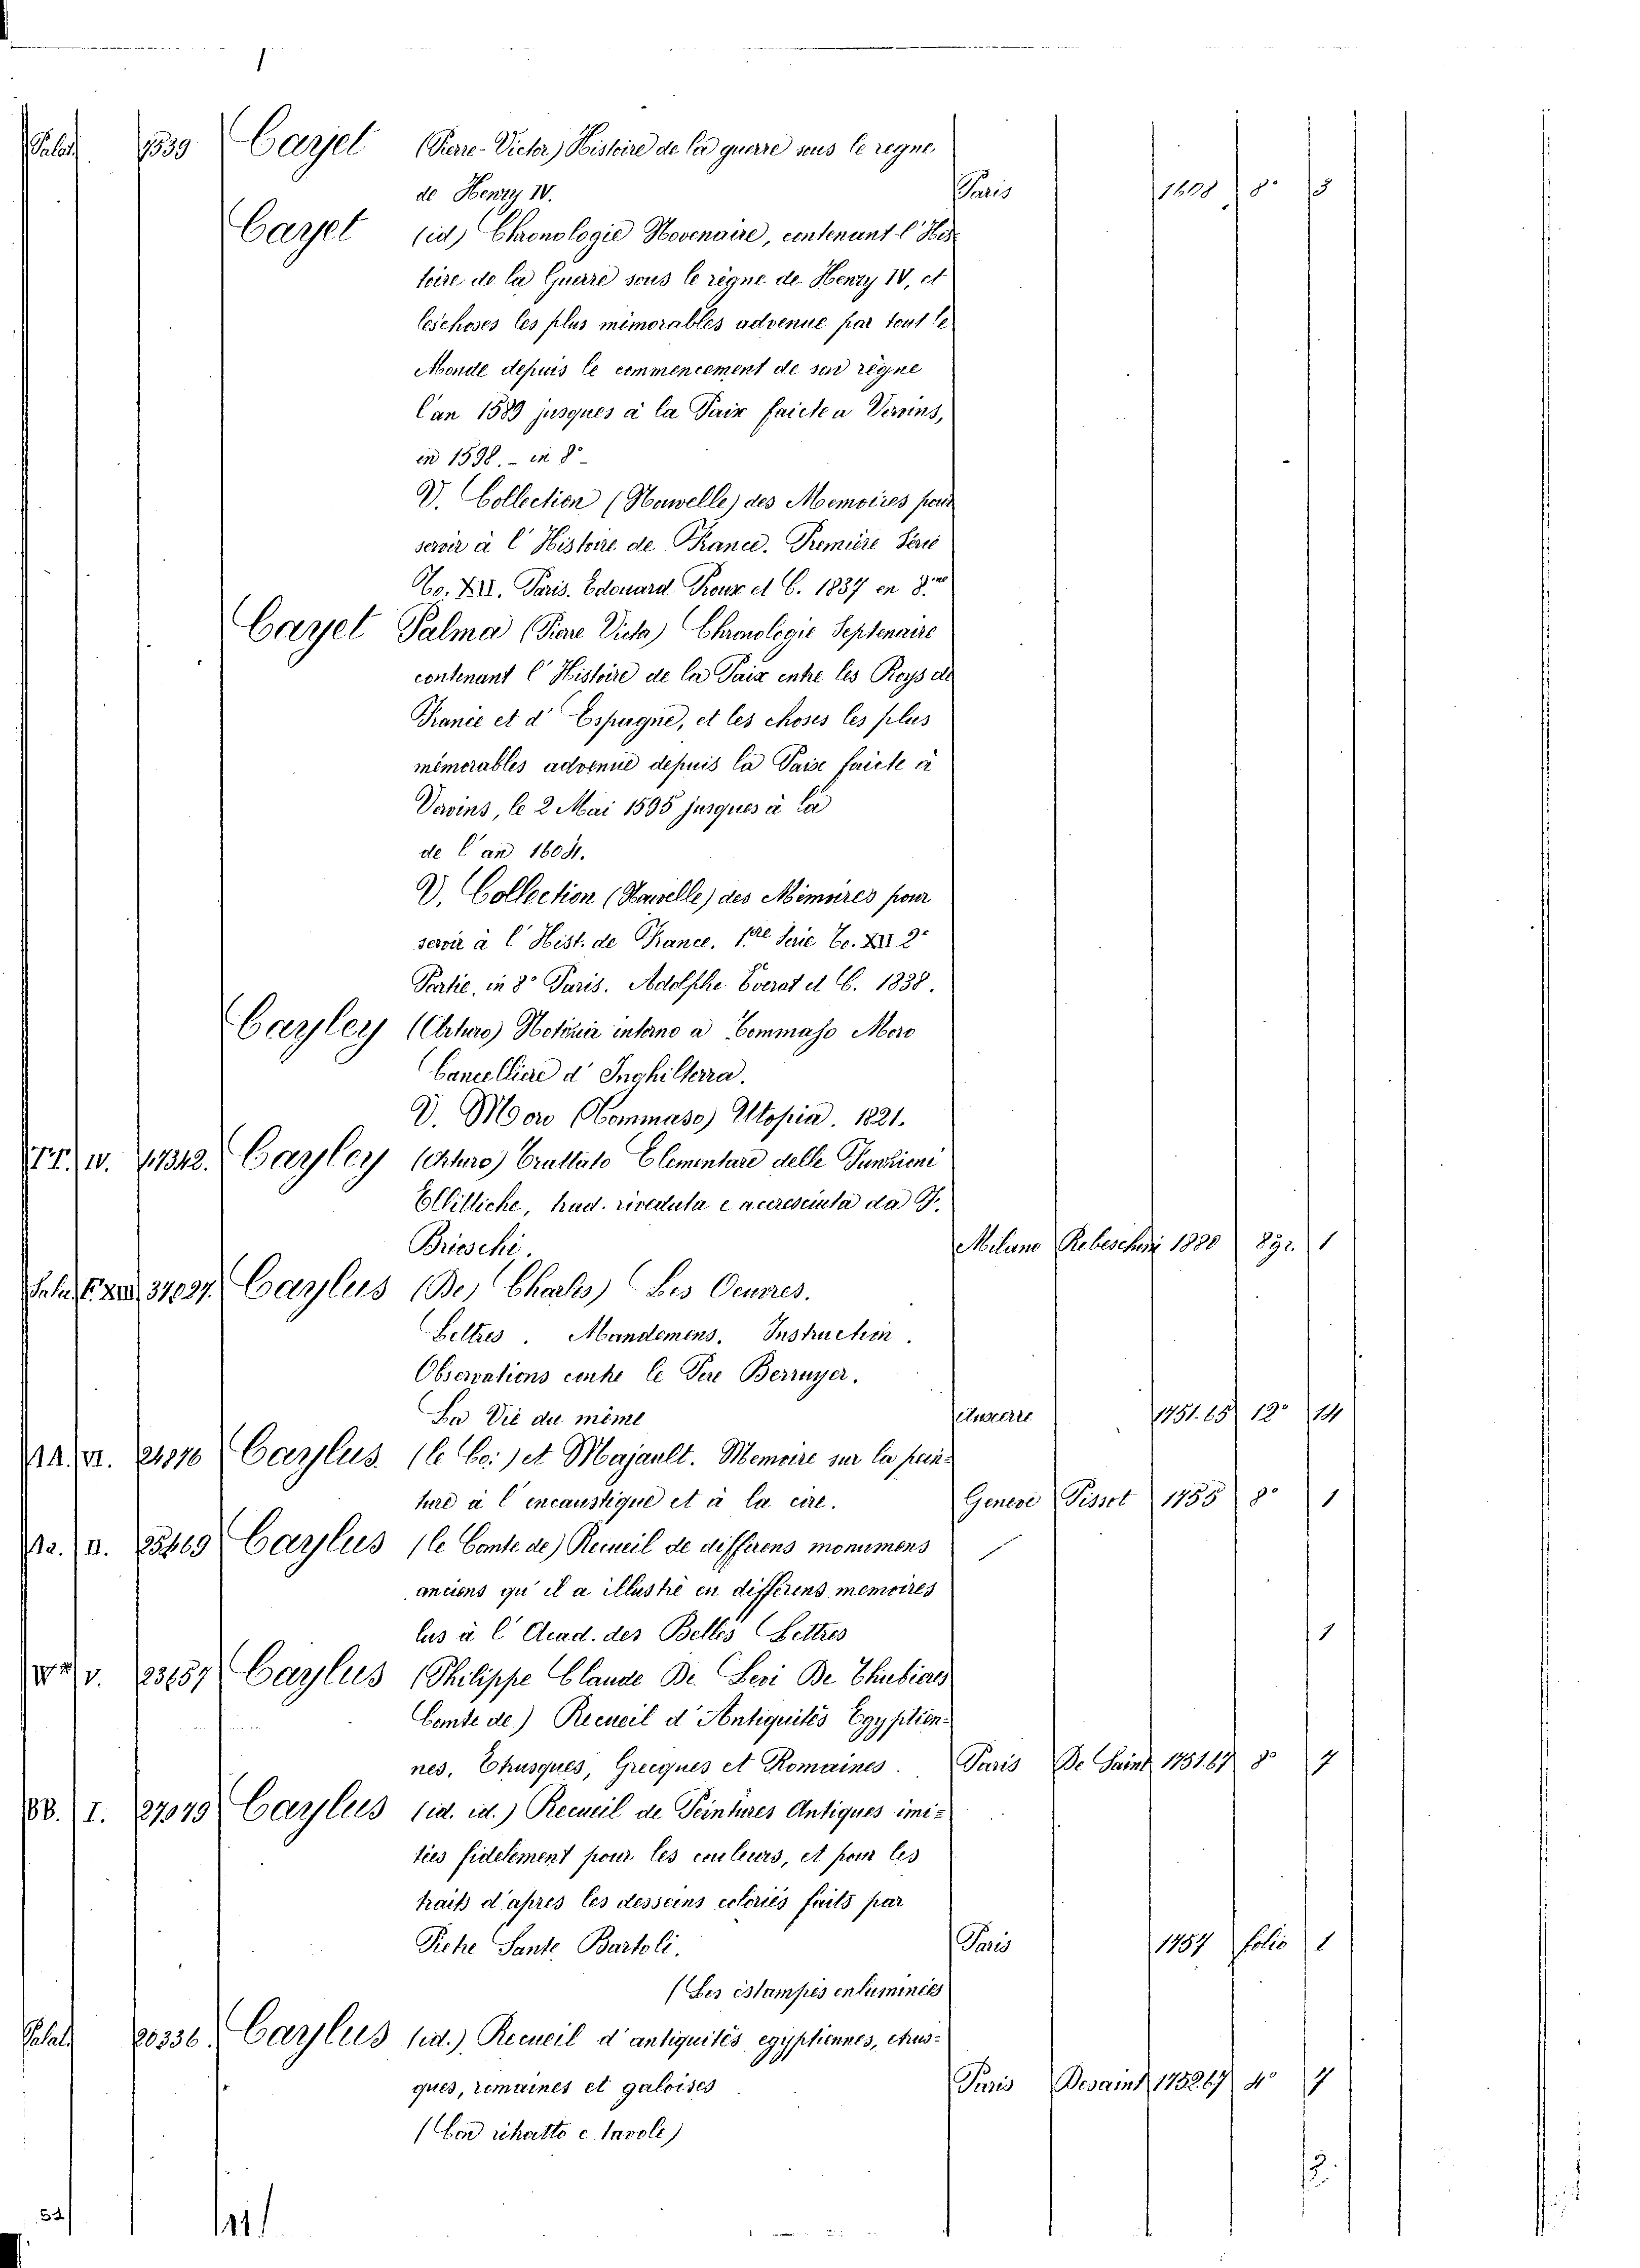 Palat. 1539 Cayet (Pierre-Victor) Histoire de la guerre sous le regne
de Henry IV. Paris 1608 8° 3
Cayet (id) Chronologie Novenaire, contenant l'His
toire de la Guerre sous le règne de Henry IV, et
les choses les plus mémorables advenue par tout le
Monde depuis le commencement de son règne
l'an 1589 jusques à la Paix faicte a Vervins,
en 1598. - in 8°-
V. Collection (Nouvelle) des Memoires pour
servir à l'Histoire de France. Première Serie
To. XII. Paris. Edouard Proux et C. 1837 en 8.me
Cayet Palma (Piere Victor) Chronologie Septenaire
contenant l'Histoire de la Paix entre les Roys de
France et d'Espagne, et les choses les plus
mémorables advenue depuis la Paise faicte à
Vervins, le 2 Mai 1595 jusques à la
de l'an 1604.
V. Collection (Nouvelle) des Mémoires pour
servir à l'Hist. de France. 1re Serie To. XII 2e
Partie, in 8° Paris. Adolphe Everat et C. 1838.
Cayley (Arturo) Notizie intorno a Tommaso Moro
Cancelliere d'Inghilterra.
V. Moro (Tommaso) Utopia. 1821.
TT. IV. 17342. Cayley (Arturo) Trattato Elementare delle Funzioni
Ellittiche, trad. riveduta e accresciuta da F.
Brioschi. Milano Rebeschini 1880 8gr. 1
Palat. XIII 34027. Caylus (De, Charles) Les Oeuvres.
Lettres. Mandemens. Instruction.
Observations contre le Pere Berruyer.
La Vie du même Auxerre 1751.65 12° 14
AA. VI. 24876 Caylus. (le Co:) et Majault. Memoire sur la pein-
ture à l'encaustique et à la cire. Geneve Pissot 1755 8° 1
II. 25469 Caylus (le Conte de) Recueil de differens monumens
anciens qu'il a illustré en différens memoires
lus à l'Acad. des Belles Lettres 1
V. 23657 Caylus (Philippe Claude De. Levi De Thubieres
Comte de) Recueil d'Antiquités Egyptien-
nes, Etrusques, Grecques et Romaines. Paris De Saint 1751.67 8° 7
BB. I. 27079 Caylus (id. id.) Recueil de Peintures Antiques imi-
tées fidelement pour les couleurs, et pour les
traits d'apres les desseins coloriés faits par
Pietre Sante Bartoli. Paris 1757 folio 1
(Les éstampes enluminées
Palat. 20336. Caylus (id.) Recueil d'antiquités egyptiennes, etrus-
ques, romaines et galoises Paris Desaint 1752.67 4° 7
(Con ritratto e tavole)
52